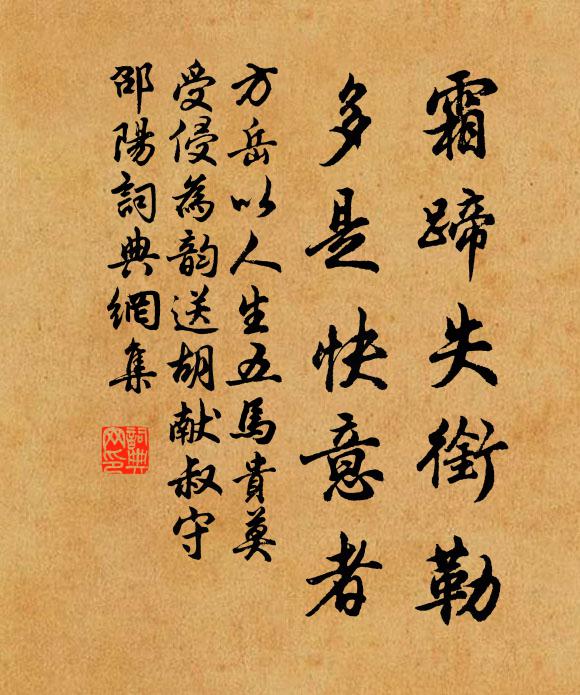 霜蹄失銜勒
多是快意者
方岳以人生五馬貴莫
受侵為韵送胡献叔守
邵陽詞典網集
詞典
网印